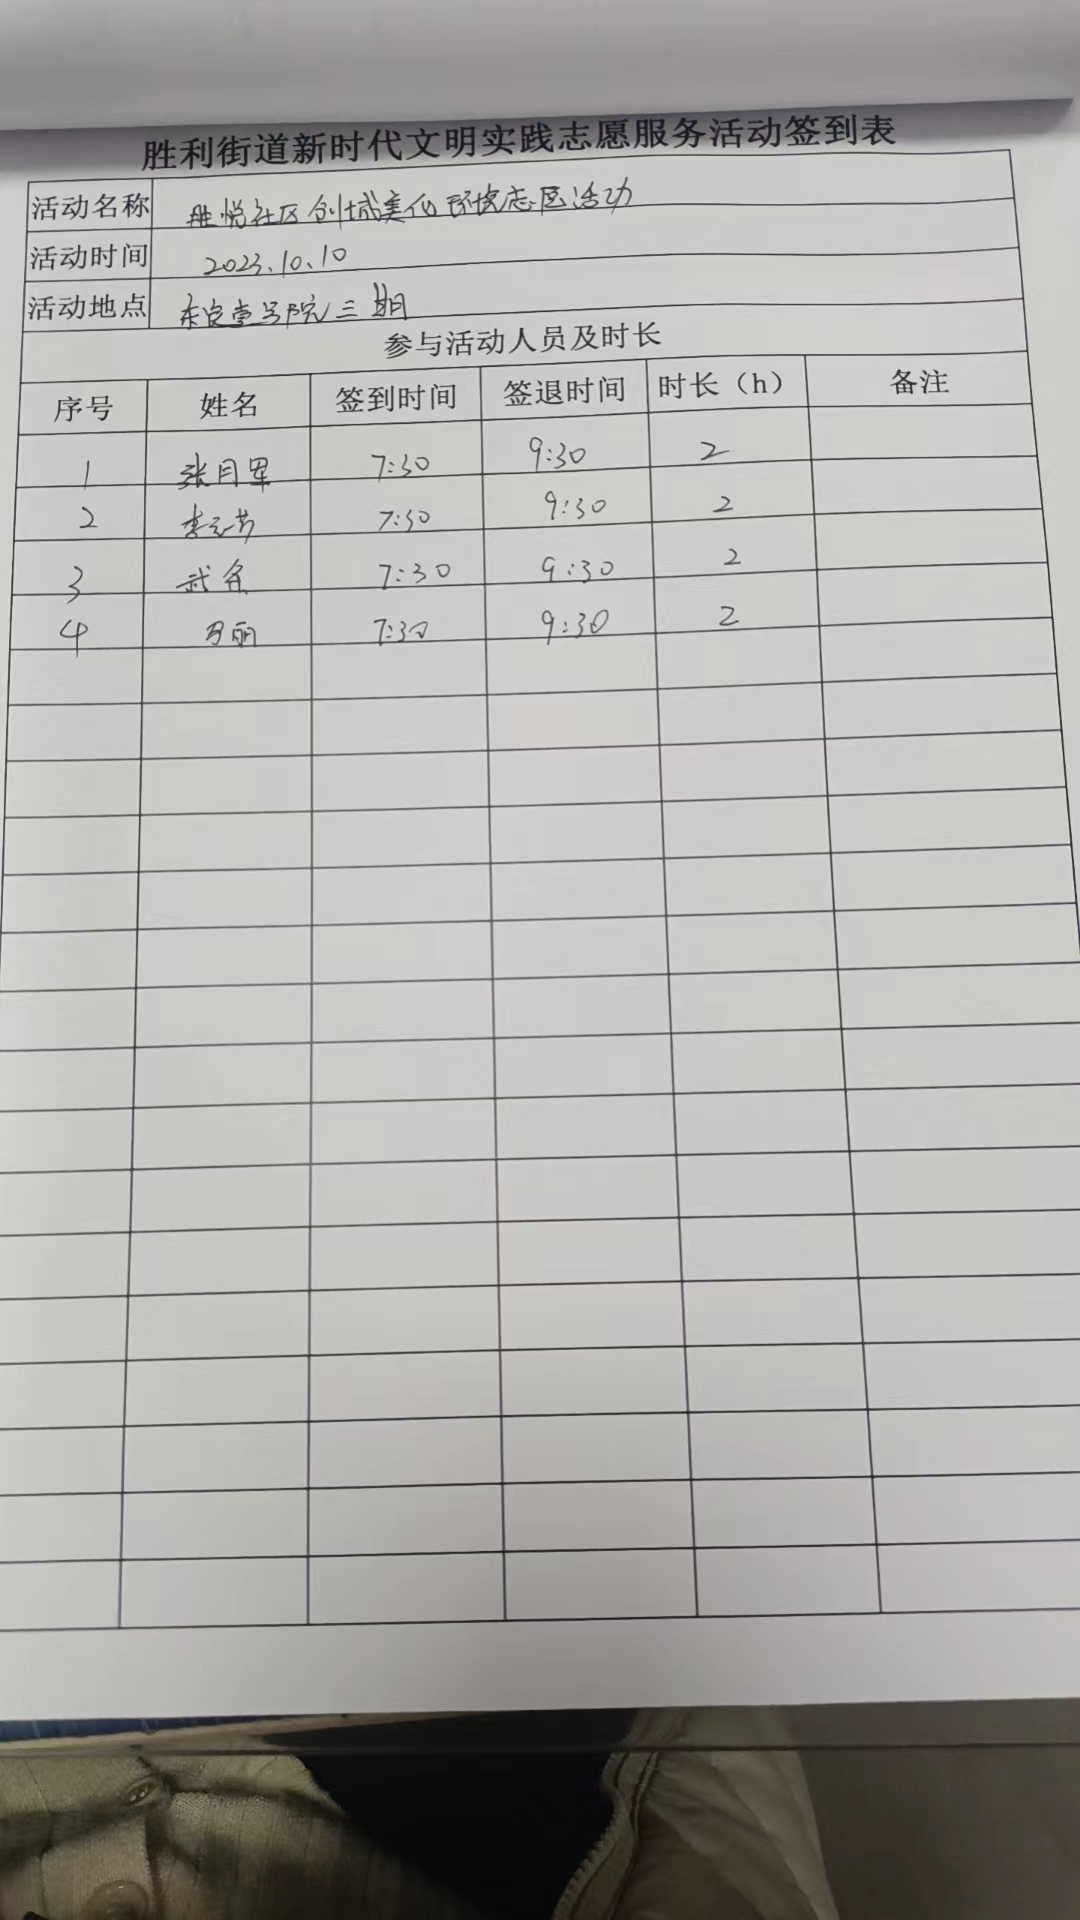 胜利街道新时代文明实践志愿服务活动签到表
活动名称 胜悦社区创城美化环境志愿活动
活动时间 2023.10.10
活动地点 东宸壹号院三期
参与活动人员及时长
序号 姓名 签到时间 签退时间 时长（h） 备注
1 张月军 7:30 9:30 2
2 7:30 9:30 2
3 7:30 9:30 2
4 7:30 9:30 2